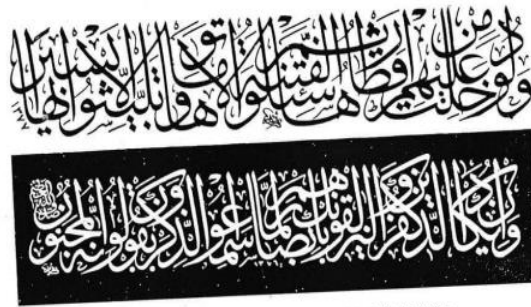 ولو دخلت عليهم من أقطارها ثم سئلوا الفتنة لآتوها وما تلبثوا بها إلا يسيرا
وإن يكاد الذين كفروا ليزلقونك بأبصارهم لما سمعوا الذكر ويقولون إنه لمجنون